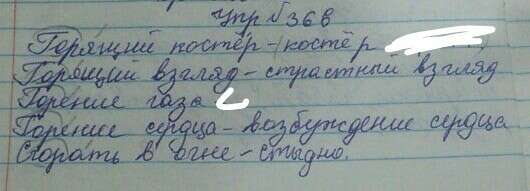 Упр №366
Горящий костёр - костёр
Горящий взгляд - страстный взгляд
Горение газа
Горение сердца - возбуждение сердца
Сгорать в огне - стыдно.